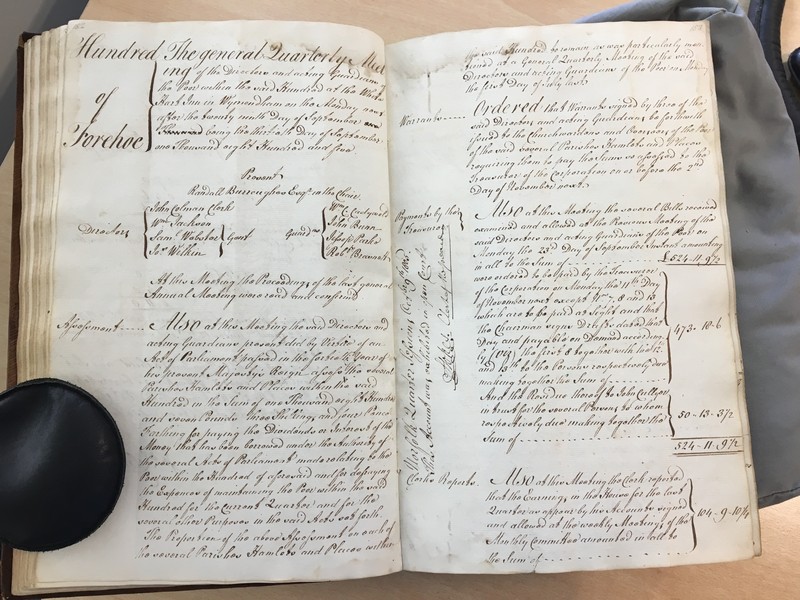 Hundred
of
Forehoe
The general Quarterly Meet
ing of the Directors and acting Guardians of
the Poor within the said Hundred at the White
Hart Inn in Wymondham on the Monday next
after the twenty ninth Day of September
being the thirtieth Day of September
one Thousand eight Hundred and five
Present
Randall Burroughes Esqr. in the Chair
Directors
John Colman Clerk
Wm. Jackson
Saml. Webster
Jos. Wilkin
Gent
Guardns
John Buan
Jessop Parke
Robt.
At this Meeting the Proceedings of the last general
Annual Meeting were read and confirmd
Assessment
Also at this Meeting the said Directors and
acting Guardians present did by Virtue of an
Act of Parliament passed in the fortieth Year of
his present Majesty's Reign assess the several
Parishes Hamlets and Places within the said
Hundred in the Sum of one Thousand eight Hundred
and seven Pounds three Shillings and four Pence
Farthing for paying the Dividends or Interest of the
Money that has been borrowed under the Authority of
the several Acts of Parliament made relating to the
Poor within the Hundred of aforesaid and for defraying
the Expences of maintaining the Poor within the said
Hundred for the current Quarter and for the
several other Purposes in the said Acts set forth
The Proportion of the above Assessment on each of
the several Parishes Hamlets and Places within
the said Hundred to remain as was particularly men
tioned at a General Quarterly Meeting of the said
Directors and acting Guardians of the Poor on Monday
the first Day of July last
Warrants
Ordered that Warrants signed by three of the
said Directors and acting Guardians be forthwith
issued to the Churchwardens and Overseers of the Poor
of the said several Parishes Hamlets and Places
requiring them to pay the Sums so assessed to the
Treasurer of the Corporation on or before the 2nd
Day of November next
Payments by the
Treasurer
Also at this Meeting the several Bills received
examined and allowed at the Previous Meeting of the
said Directors and acting Guardians of the Poor on
Monday the 23rd Day of September Instant amounting
in all to the Sum of £524-11-9½
were ordered to be paid by the Treasurer
of the Corporation on Monday the 11th Day
of November next except No. 7, 8 and 13
which are to be paid at Sight and that
the Chairman signs Drafts dated that
Day and payable on Demand according
the first 8 together with the 12
and 13th to the Persons respectively due
making together the Sum of 473-18-6
And the Residue thereof to John Cullyer
in trust for the several Persons to whom
respectively due making together the
Sum of 50-13-3½
524-11-9½
Norfolk Quarter Sessions Octr. 9th 1805
This Account was exhibited in open Court
Clerk of the peace
Clerks Reports
Also at this Meeting the Clerk reported
that the Earnings in the House for the last
Quarter as appear by his Accounts signed
and allowed at the weekly Meetings of the
Monthly Committee amounted in all to
the Sum of 104-9-10¼